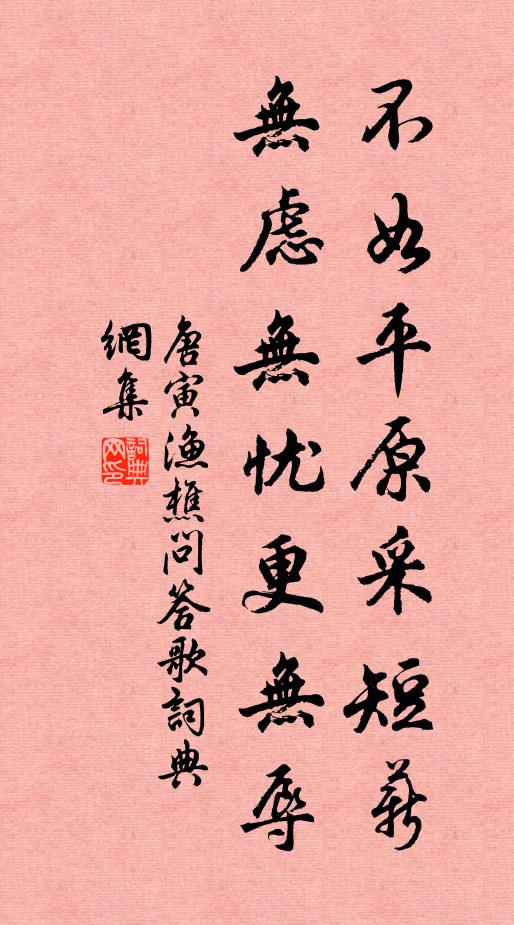 不如平原采短薪
無慮無忧更無辱
唐寅漁樵問答歌詞典
網集
詞典网印